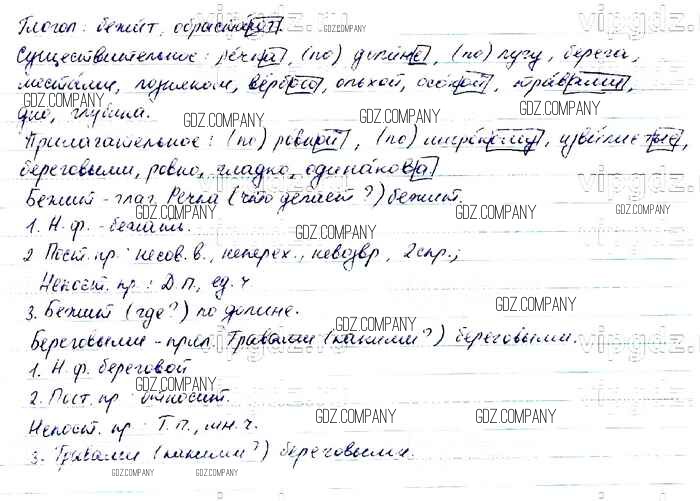 Глагол: бежит, обрастают.
Существительные: речка, (по) долине, (по) лугу, берега,
местами, лозняком, вербою, ольхой, осокой, травами,
дно, глубина.
Прилагательное: (по) ровной, (по) широкому, извилистые,
береговыми, ровно, гладко, одинакова
Бежит - глаг. Речка (что делает?) бежит.
1. Н.ф. - бежать.
2 Пост. пр: несов. в., неперех., невозвр, 2 спр.;
Непост. пр: Д.п., ед. ч
3. Бежит (где?) по долине.
Береговыми - прил. Травами (какими?) береговыми.
1. Н.ф. береговой
2. Пост. пр: относит.
Непост. пр: Т.п., мн. ч.
3. Травами (какими?) береговыми.
GDZ.COMPANY
vipgdz